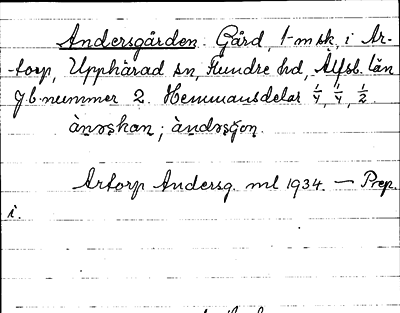 Andersgården. Gård, 1 msk, i Ar-
-torp, Upphärad sn, Flundre hd, Älfsb. län
Jb. nummer 2. Hemmansdelar 1/4, 1/4, 1/2.
Artorp Andersg. ml 1934. — Prep.
i.